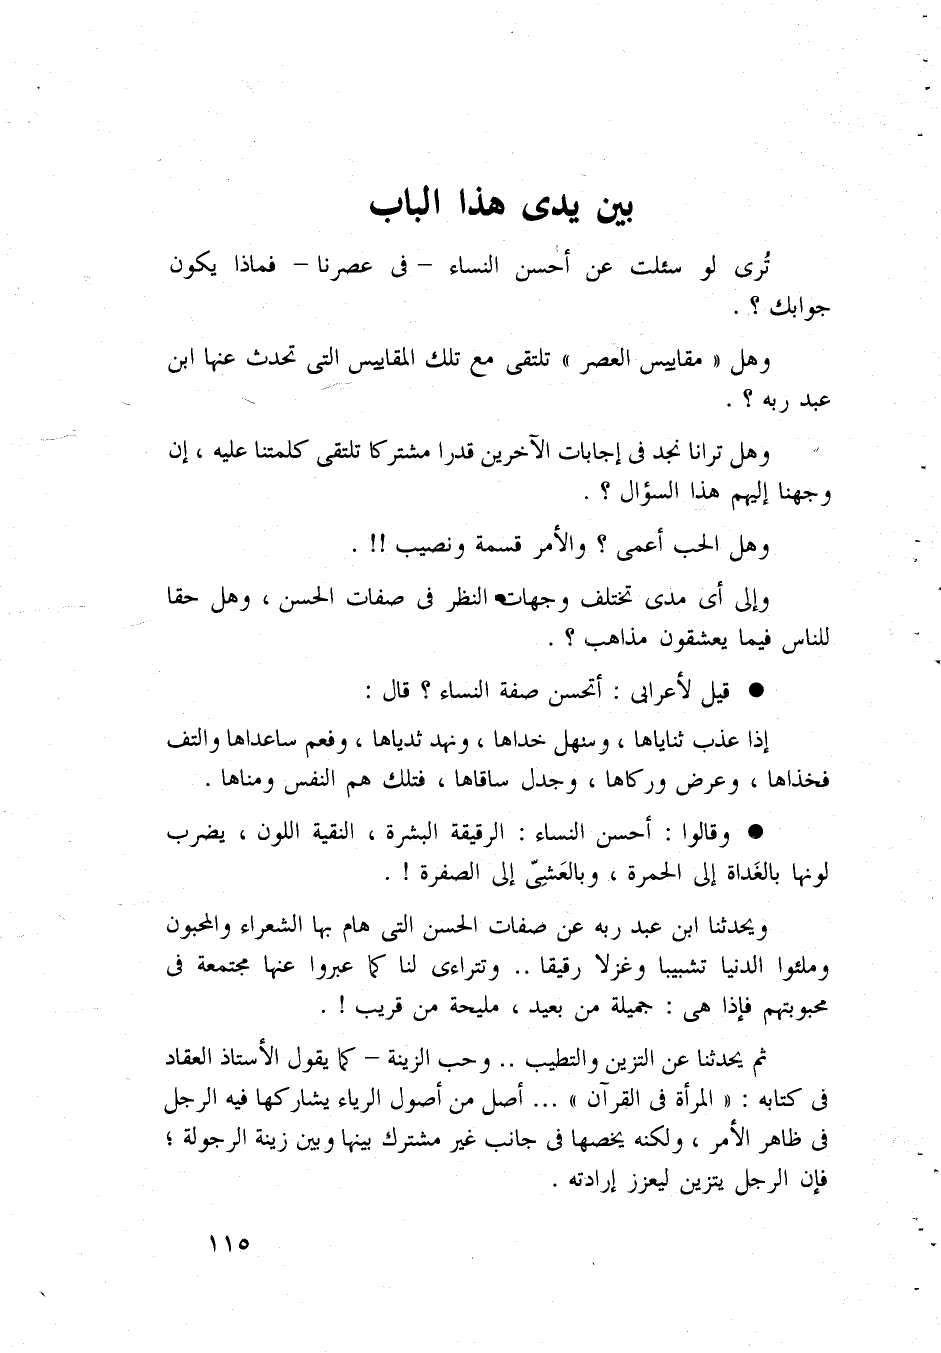 بين يدى هذا الباب
تُرى لو سئلت عن أحسن النساء – فى عصرنا – فماذا يكون
جوابك ؟ .
وهل « مقاييس العصر » تلتقى مع تلك المقاييس التى تحدث عنها ابن
عبد ربه ؟ .
وهل ترانا نجد فى إجابات الآخرين قدرا مشتركا تلتقى كلمتنا عليه ، إن
وجهنا إليهم هذا السؤال ؟ .
وهل الحب أعمى ؟ والأمر قسمة ونصيب !! .
وإلى أى مدى تختلف وجهات النظر فى صفات الحسن ، وهل حقا
للناس فيما يعشقون مذاهب ؟ .
● قيل لأعرابى : أتحسن صفة النساء ؟ قال :
إذا عذب ثناياها ، وسهل خداها ، ونهد ثدياها ، وفعم ساعداها والتف
فخذاها ، وعرض وركاها ، وجدل ساقاها ، فتلك هم النفس ومناها .
● وقالوا : أحسن النساء : الرقيقة البشرة ، النقية اللون ، يضرب
لونها بالغَداة إلى الحمرة ، وبالعَشِىّ إلى الصفرة ! .
ويحدثنا ابن عبد ربه عن صفات الحسن التى هام بها الشعراء والمحبون
وملئوا الدنيا تشبيبا وغزلا رقيقا .. وتتراءى لنا كما عبروا عنها مجتمعة فى
محبوبتهم فإذا هى : جميلة من بعيد ، مليحة من قريب ! .
ثم يحدثنا عن التزين والتطيب .. وحب الزينة – كما يقول الأستاذ العقاد
فى كتابه : « المرأة فى القرآن » ... أصل من أصول الرياء يشاركها فيه الرجل
فى ظاهر الأمر ، ولكنه يخصها فى جانب غير مشترك بينها وبين زينة الرجولة ؛
فإن الرجل يتزين ليعزز إرادته .
١١٥